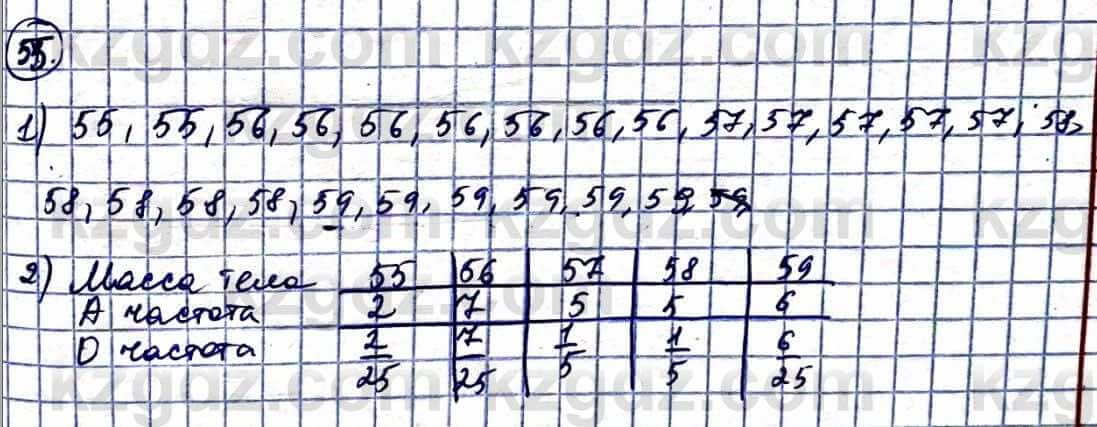 55.
1) 55, 55, 56, 56, 56, 56, 56, 56, 56, 57, 57, 57, 57, 57, 58,
58, 58, 58, 58, 59, 59, 59, 59, 59, 59, 59
2) Масса тела 55 56 57 58 59
А частота 2 7 5 5 6
О частота 2/25 7/25 1/5 1/5 6/25
kzgdz.com